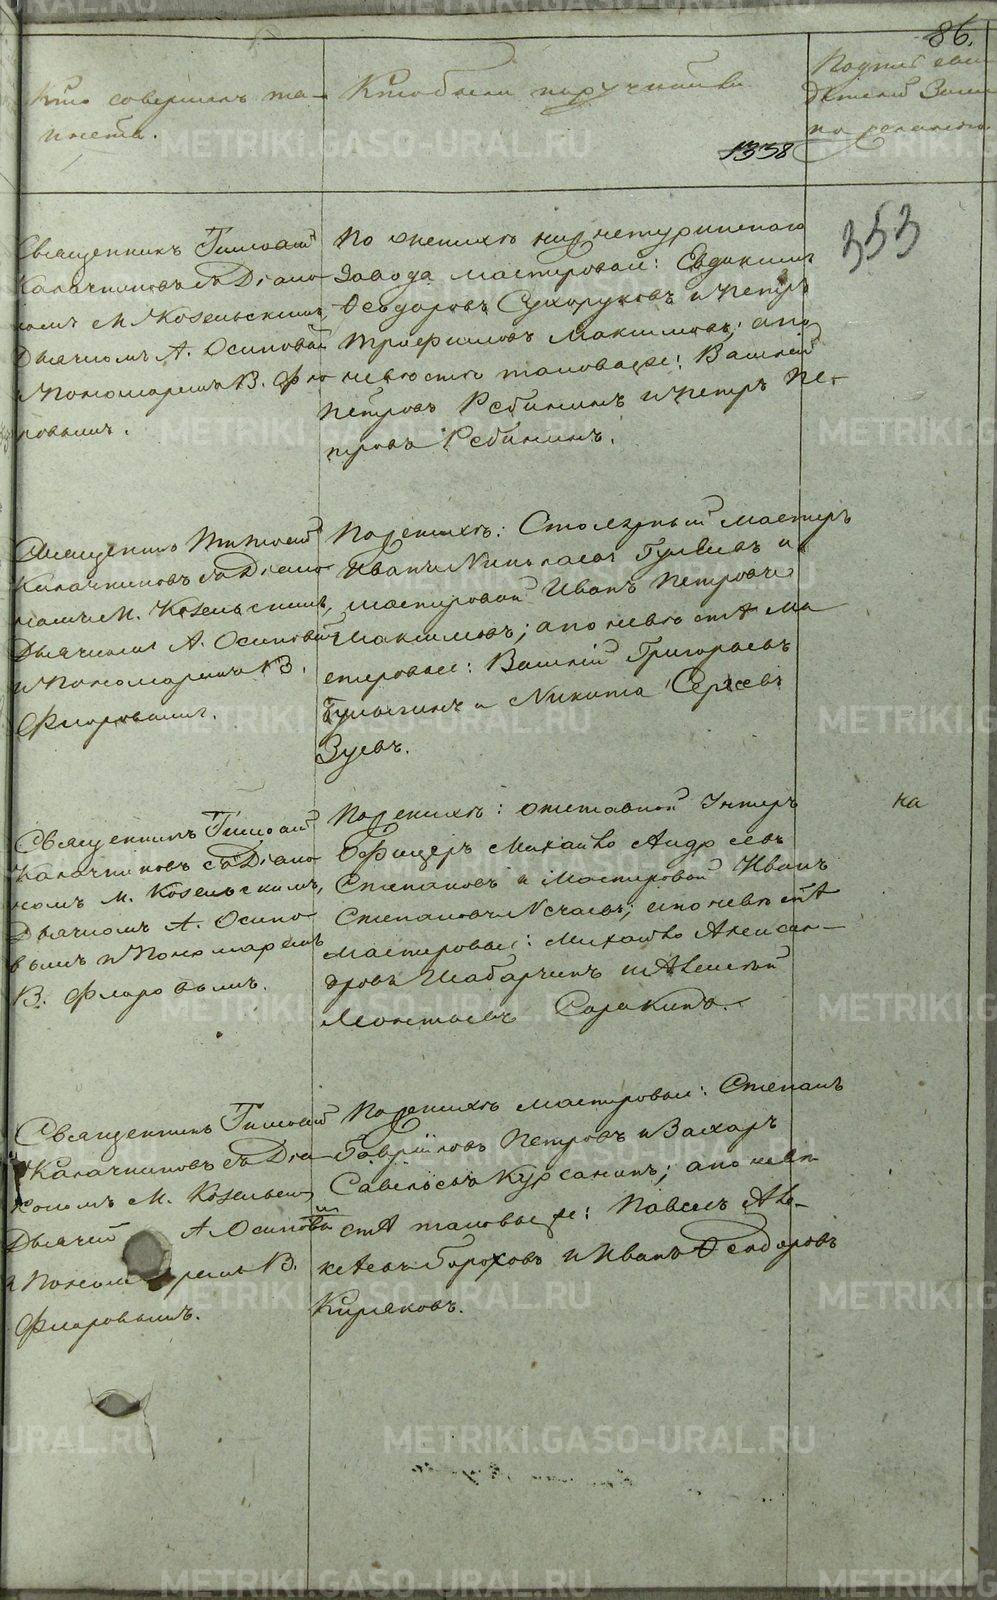 86.
Кто совершалъ та-
инство.
Кто были поручители
Подпись сви
детелей Запи
по желанию
1338
353
Священникъ Тимофей
Калачниковъ съ Діако
номъ М. Козельскимъ,
Дьячкомъ А. Осиповы
и Пономаремъ В. Фло
ровымъ.
По женихѣ нижнетуринскаго
завода мастеровые: Евдокимъ
Ѳеодоровъ Сухоруковъ и Петръ
Трофимовъ Максимовъ; а по
невѣстѣ таковые же: Василій
Петровъ Рябининъ и Петръ Пе-
тровъ Рябининъ.
Священникъ Тимофей
Калачниковъ съ Діако
номъ М. Козельскимъ,
Дьячкомъ А. Осиповы
и Пономаремъ В.
Флоровымъ.
По женихѣ: Столярный мастеръ
Иванъ Николаевъ Гуляевъ и
мастеровой Иванъ Петровъ
Максимовъ; а по невѣстѣ ма
стеровые: Василій Григорьевъ
и Никита Сергѣевъ
Зуевъ.
Священникъ Тимофей
Калачниковъ съ Діако
номъ М. Козельскимъ,
Дьячкомъ А. Осипо
вымъ и Пономаремъ
В. Флоровымъ.
По женихѣ: отставной Унтеръ
Офицеръ Михайло Андреевъ
Степановъ и Мастеровой Иванъ
Степановъ Исчаевъ; а по невѣстѣ
мастеровые: Михайло Алексан-
дровъ Шабарчинъ и Алексѣй
Леонтьевъ Сорокинъ.
на
Священникъ Тимофей
Калачниковъ съ Діа
кономъ М. Козельски
Дьячкомъ А. Осиповы
и Пономаремъ В.
Флоровымъ.
По женихѣ мастеровые: Степанъ
Гавриловъ Петровъ и Захаръ
Савельевъ Курсанинъ; а по невѣ
стѣ таковые же: Павелъ Але-
ксѣевъ Бороховъ и Иванъ Ѳеодоровъ
Киряковъ.